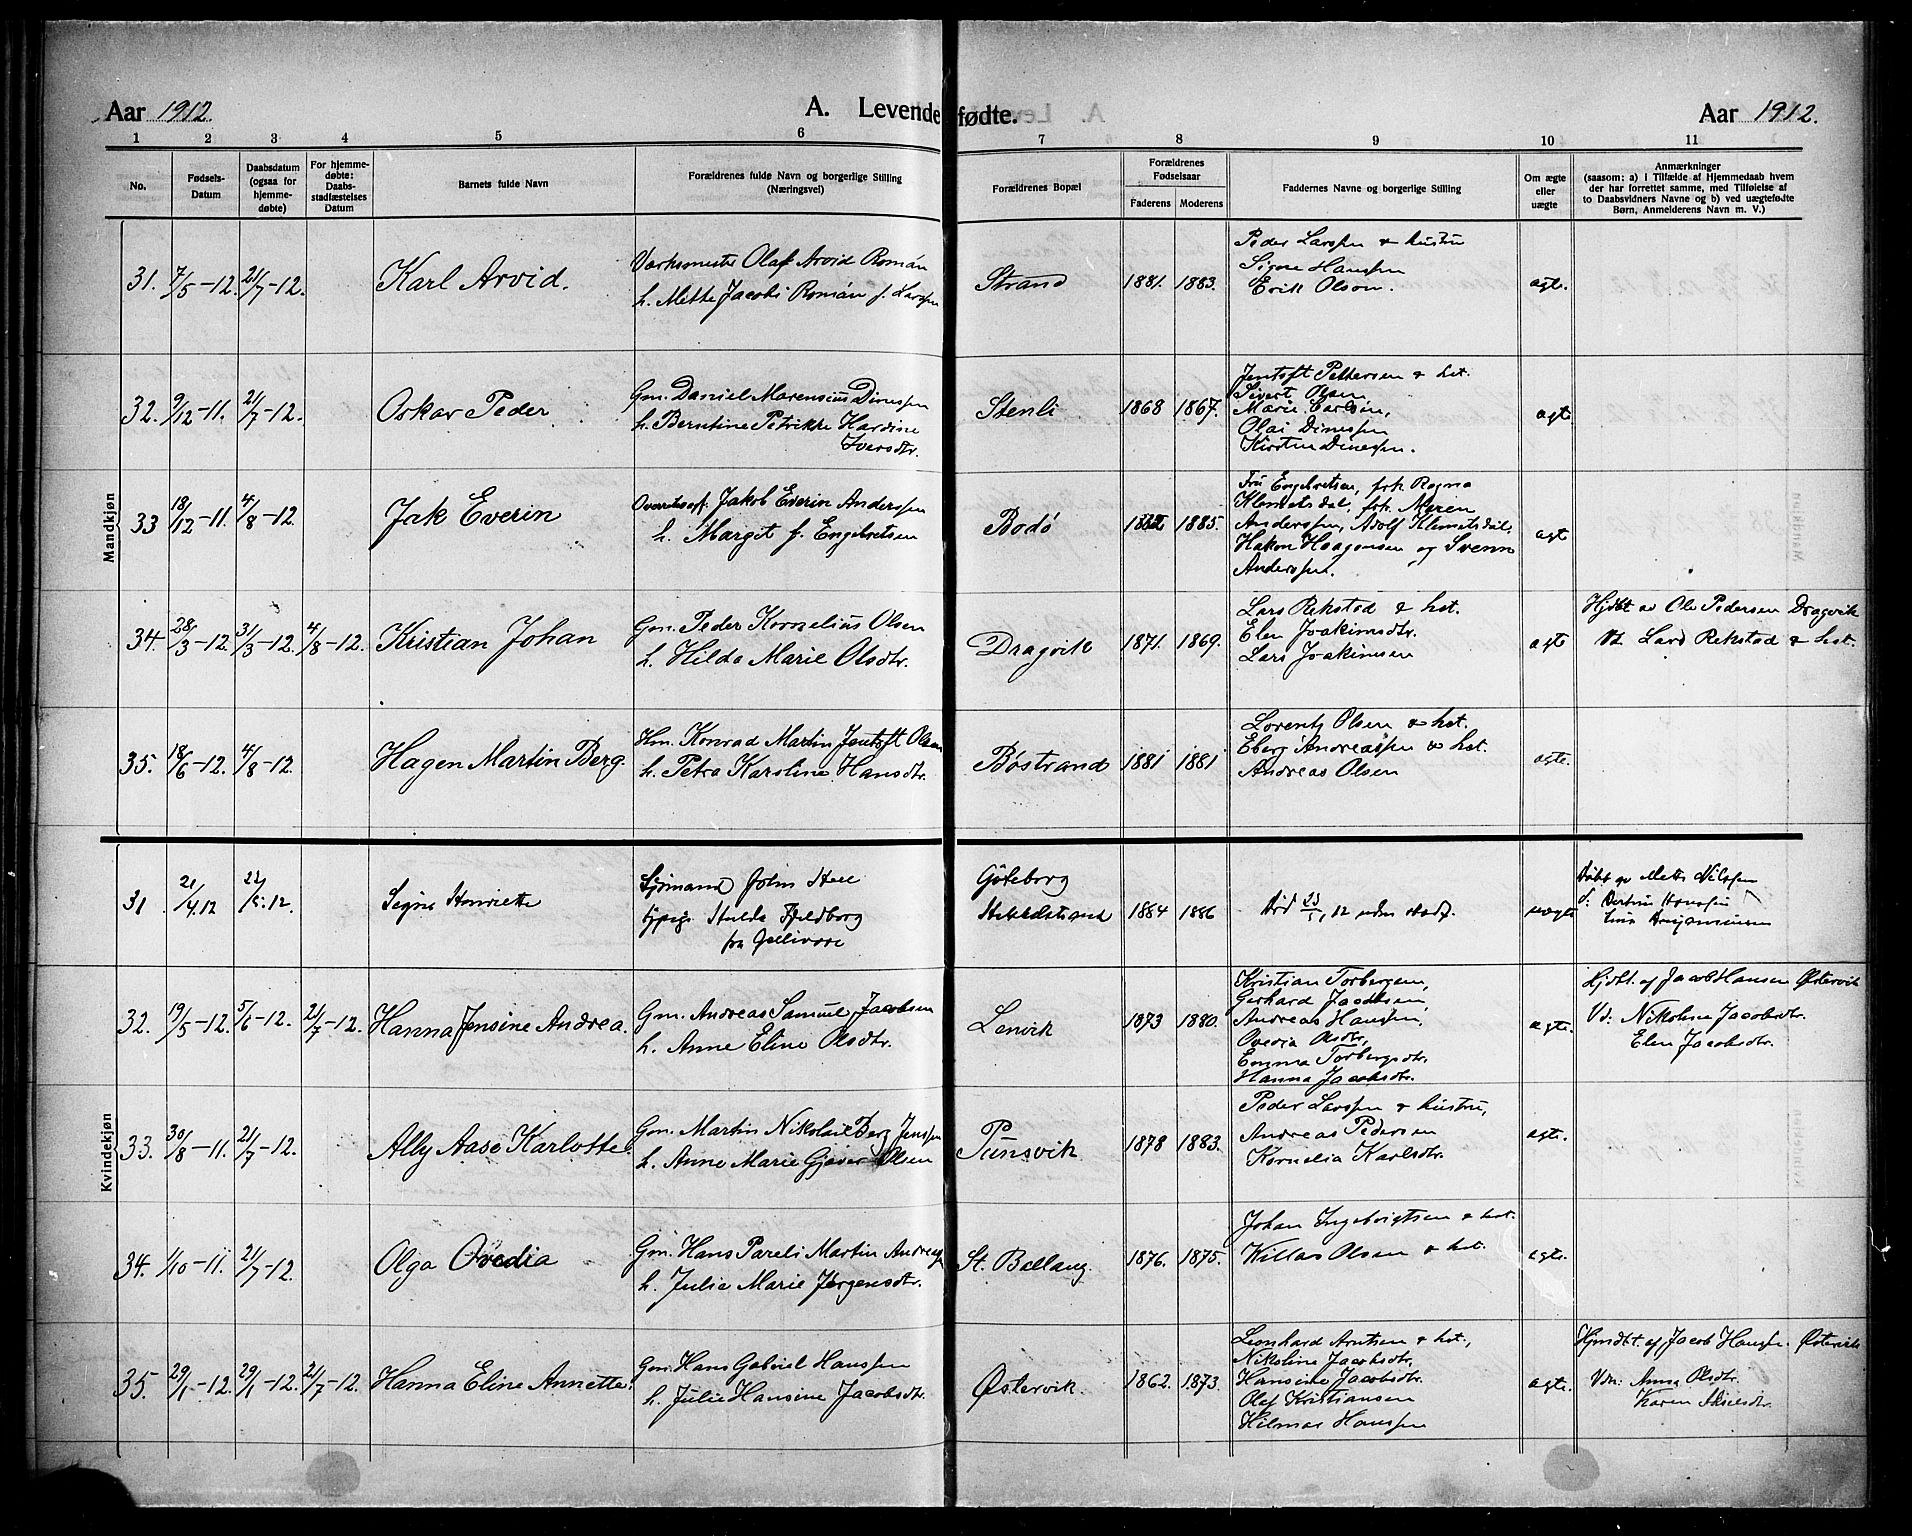 Aar 1912.
A. Levendefødte.
Aar 1912.
1 2 3 4 5 6 7 8 9 10 11
No.
Fødsels-
Datum
Daabsdatum
(ogsaa for
hjemme-
døbte)
For hjemme-
døbte:
Daabs-
stadfæstelses
Datum
Barnets fulde Navn
Forældrenes fulde Navn og borgerlige Stilling
(Næringsvei)
Forældrenes Bopæl
Forældrenes
Fødselsaar
Faderens Moderens
Faddernes Navne og borgerlige Stilling
Om ægte
eller
uægte
Anmærkninger
(saasom: a) i Tilfælde af Hjemmedaab hvem
der har forrettet samme, med Tilføielse af
to Daabsvidners Navne og b) ved uægtefødte
Børn, Anmelderens Navn m. V.)
Mandkjøn
31. 7/5-12. 21/7-12.
Karl Arvid.
Værksmester Olaf Arvid Román
h. Mette Jacobi Román f. Larssen
Strand
1881. 1883.
Peder Larssen & hustru
Signe Hanssen
Erik Olson.
ægte.
32. 9/12-11. 21/7-12.
Oskar Peder
Gm. Daniel Marensius Dinessen
h. Berntine Petrikke Hardine
Iversdtr.
Stenli
1868 1867.
Jentoft Pettersen & hst.
Sivert Olsen
Marie Carlsen,
Olai Dinessen
Kirsten Dinessen.
ægte
33 18/12-11. 4/8-12.
Jak Everin
Jakob Everin Anderssen
h. Margit f. Engebretsen
Bodø
1885.
Fru Engebretsen, frk. Ragna
Klemetsdal, frk. Maren
Anderssen, Adolf Klemetsdal,
Hakon Haagensen og Svenn
Anderssen.
ægt
34. 28/3-12. 31/3-12. 4/8-12.
Kristian Johan
Gm. Peder Kornelius Olsen
h. Hilda Marie Olsdtr.
Dragvik
1871. 1869.
Lars Rekstad & hst.
Elen Joakimsdtr.
Lars Joakimsen
ægte
Hjdbt av Ole Pedersen Dragvik
Vd. Lars Rekstad & hst.
35. 18/6-12. 4/8-12.
Hagen Martin Berg.
Hm. Konrad Martin Jentoft Olsen
h. Petra Karoline Hansdtr.
Bøstrand
1881 1881
Lorentz Olsen & hst.
Eberg Andreassen & hst.
Andreas Olsen
ægte.
Kvindekjøn
31 21/4.12 22/5.12.
Signe Henriette
Sjømand John
Hulda Fjeldborg
fra Gellivare
Göteborg
1884 1886
Død 23/5, 12 uden Stadf.
uægte
Døbt av Mette Nilssen
32. 19/5-12. 5/6-12. 21/7-12.
Hanna Jensine Andrea.
Gm. Andreas Samuel Jacobsen
h. Anne Eline Olsdtr.
Lenvik
1873 1880.
Kristian Torbergsen,
Gerhard Jacobsen
Andreas Hanssen,
Ovedia Olsdtr,
Emma Torbergsdtr.
Hanna Jacobsdtr.
ægte.
Hjdbt. af Jacob Hansen Østervik
Vd: Nikoline Jacobsdtr.
Elen Jacobsdtr.
33. 30/8-11. 21/7-12.
Ally Aase Karlotte.
Gm. Martin Nikolai Berg Jenssen
h. Anne Marie Gjæver Olsen
Pünsvik
1878 1883.
Peder Larssen & hustru,
Andreas Pedersen
Kornelia Karlsdtr.
ægte.
34. 1/10-11. 21/7-12.
Olga Ovedia
Gm. Hans Pareli Martin Andreas
h. Julie Marie Jørgensdtr.
St. Ballang.
1876. 1875.
Johan Ingebrigtsen & hst.
Willas Olsen & hst.
ægte.
35. 29/1-12. 29/1-12. 21/7-12.
Hanna Eline Annette.
Gm. Hans Gabriel Hanssen
h. Julie Hansine Jacobsdtr.
Østervik.
1862. 1873.
Leonhard Arntsen & hst.,
Nikoline Jacobsdtr.
Hansine Jacobsdtr.
Olaf Kristiansen
Hilmar Hanssen
ægte.
Hjmdbt. af Jacob Hanssen Østervik
Vdn: Anna Olsdtr.
Karen Akselsdtr.